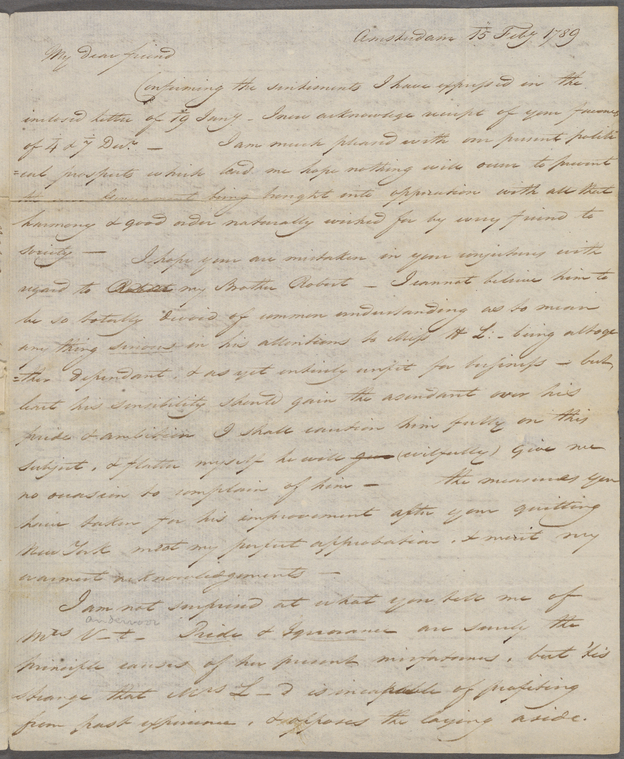 Amsterdam 15 Feby 1789
My dear friend
Confirming the sentiments I have expressed in the
inclosed letter of 19 Jany - I now acknowlege receipt of your favours
of 4 & 7 Decr. — I am much pleased with our present politi
=cal prospects which lead me hope nothing will occur to prevent
being brought into opperation with all that
harmony & good order naturally wished for by every friend to
society — I hope you are mistaken in your conjectures with
regard to my Brother Robert — I cannot believe him to
be so totally devoid of common understanding as to mean
any thing serious in his attentions to Miss H L. - being altoge
=ther dependant, & as yet entirely unfit for business — but
least his sensibility should gain the asendant over his
pride & ambition I shall caution him fully on this
subject, & flatter myself he will (wilfully) give me
no occasion to complain of him — the measures you
have taken for his improvement after your quitting
New York meet my perfect approbation, & merit my
warmest acknowledgements —
I am not surprised at what you tell me of
Mrs V—t— Pride & Ignorance are surely the
principle causes of her present misfortunes, but 'tis
strange that Mrs L—d is incapable of profiting
from past experience, & opposes the laying aside.